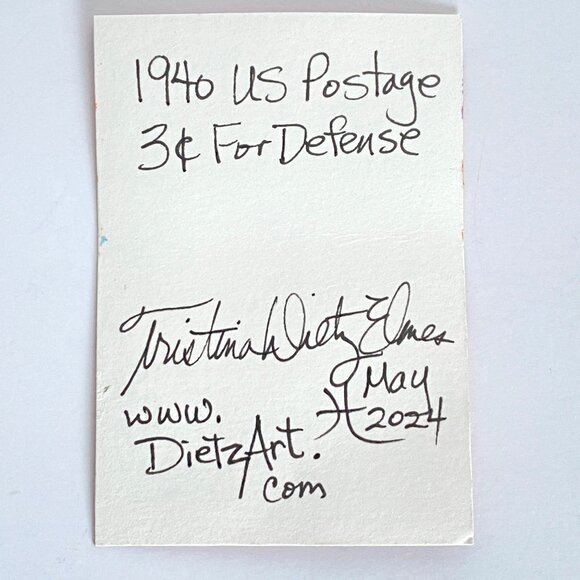 1940 US Postage
3¢ For Defense
Tristina Dietz Elmes
May
www. 2024
DietzArt.
com